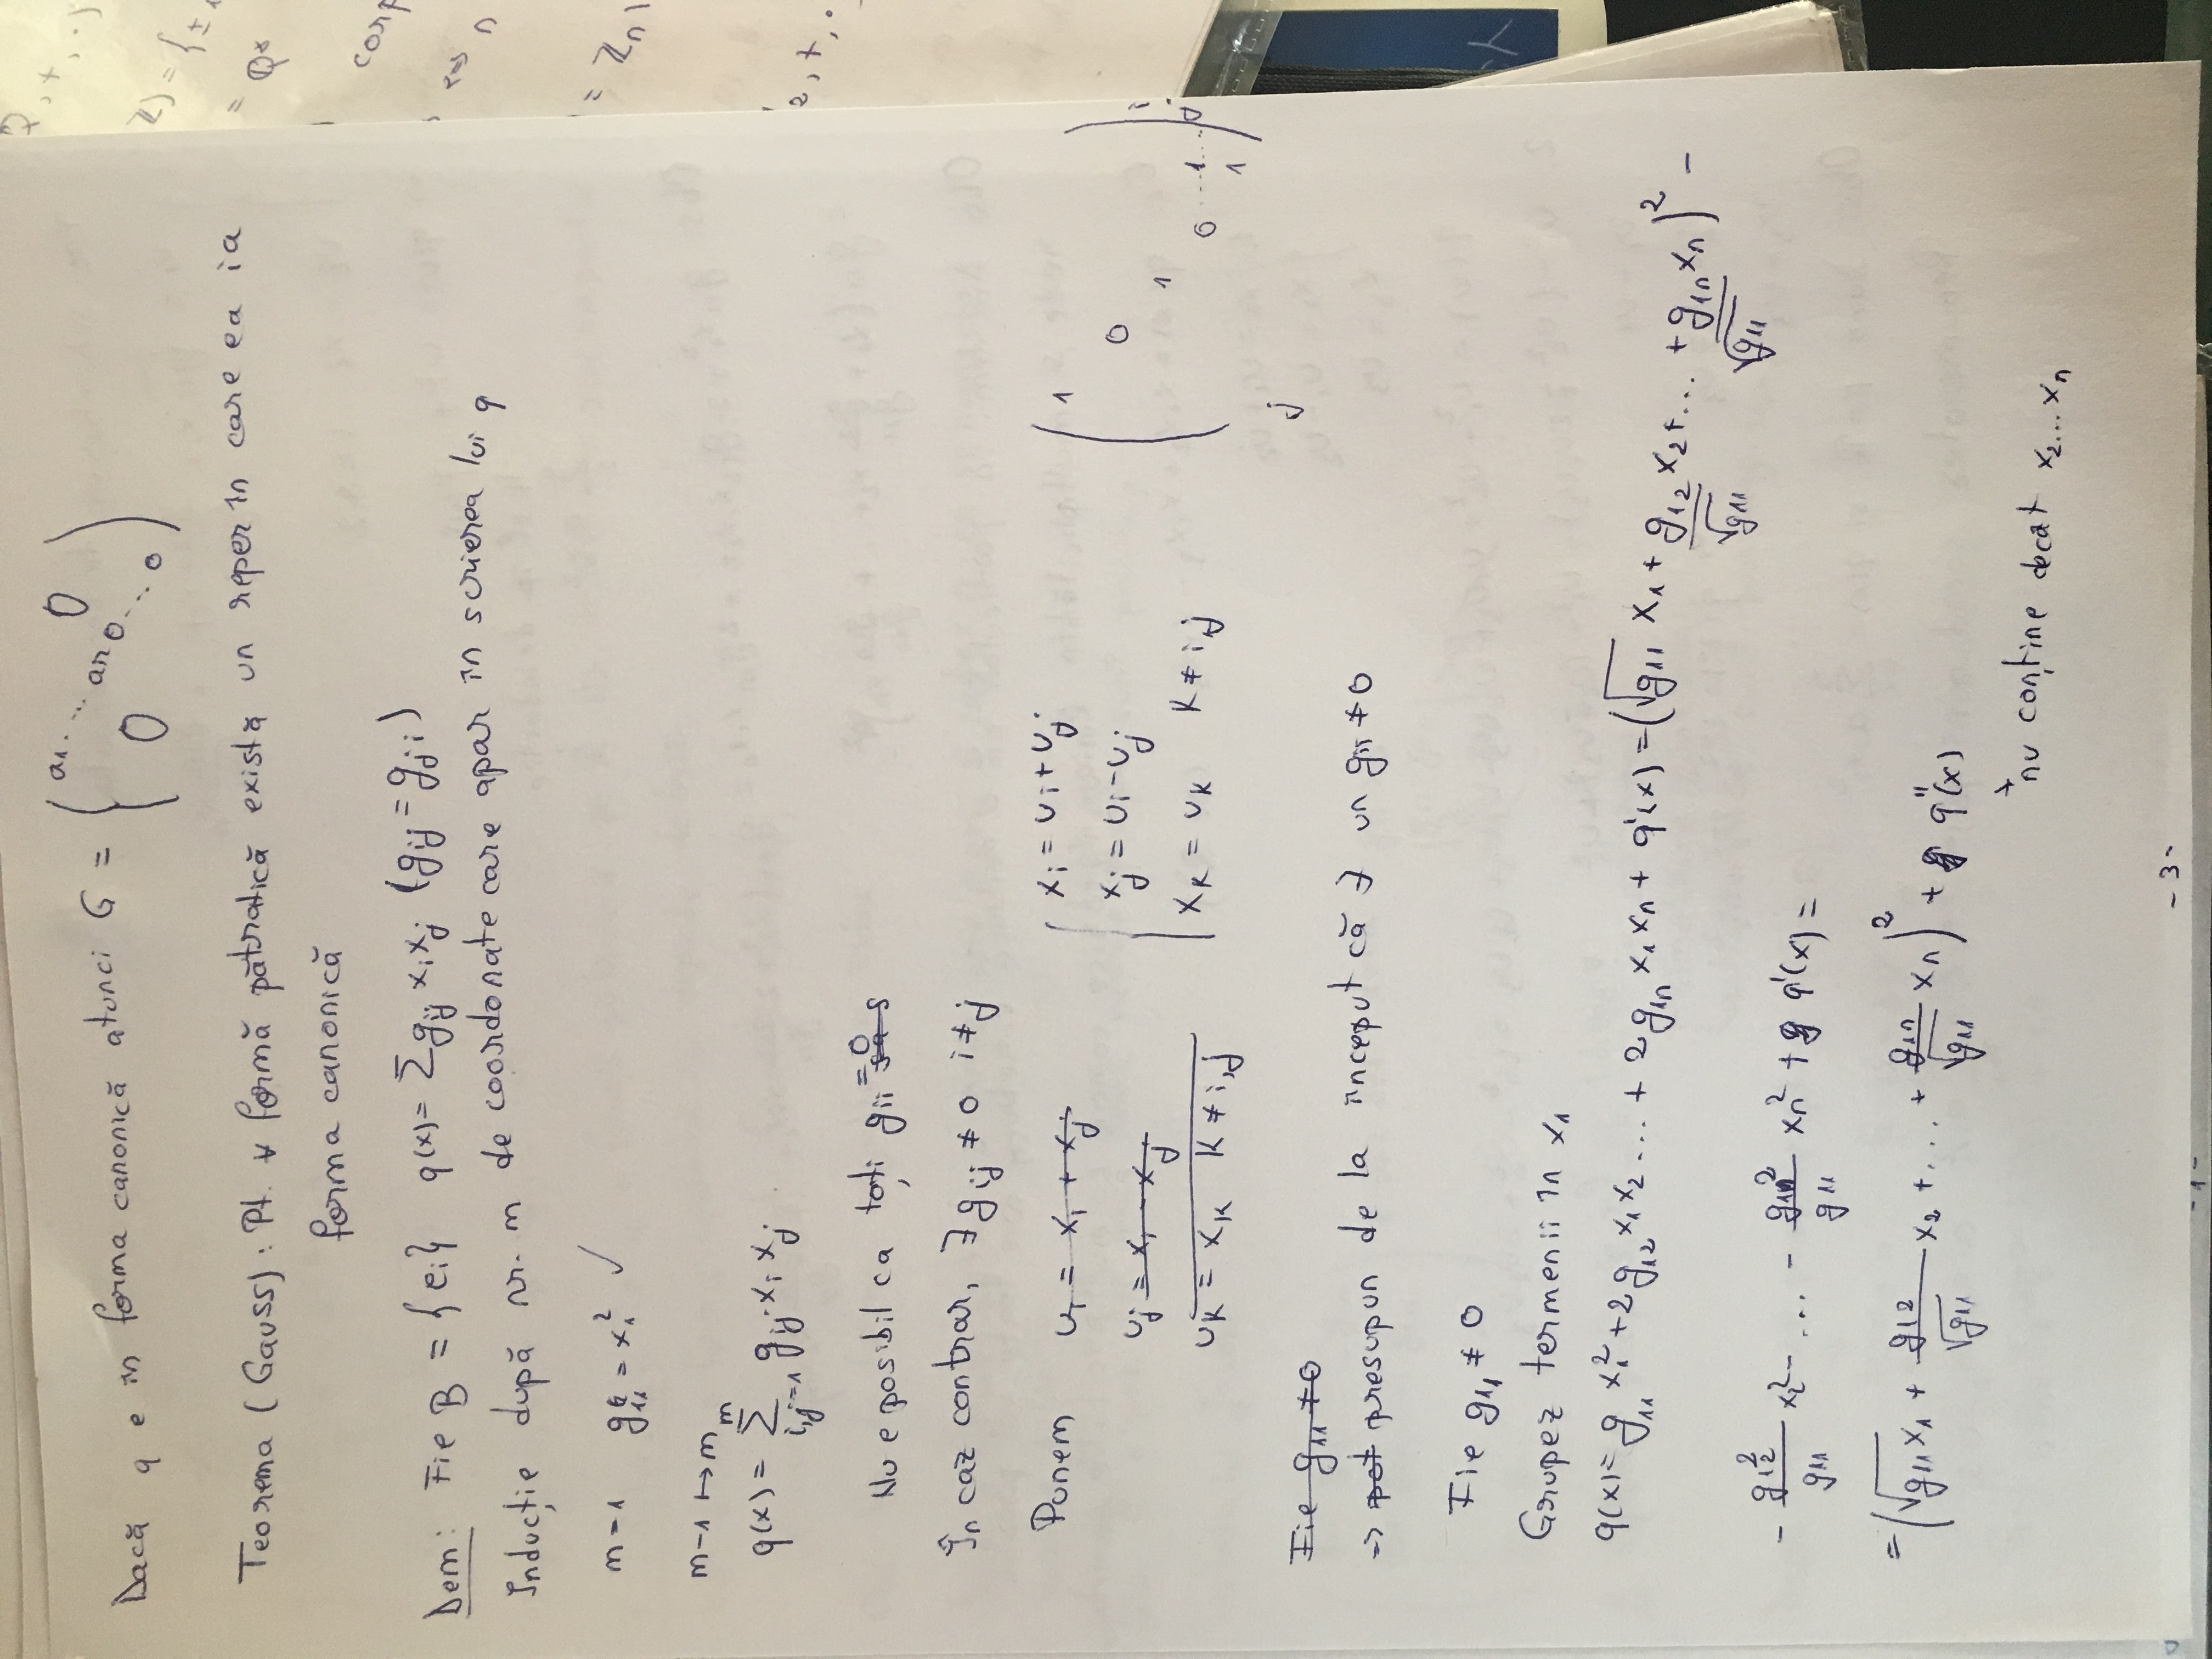 Dacă q e în forma canonică atunci G = ( a1. ... ar 0 ... 0 0 0 )
Teorema (Gauss): Pt. ∀ formă pătratică există un reper în care ea ia
forma canonică
Dem: Fie B = {ei} q(x) = Σ gij xi xj (gij = gji)
Inducție după nr. m de coordonate care apar în scrierea lui q
m = 1 g11 = x1² ✓
m-1 ↦ m
q(x) = Σ_{i,j=1}^{m} gij xi xj
Nu e posibil ca toți gii = 0
În caz contrar, ∃ gij ≠ 0 i ≠ j
Punem ui = xi + xj xi = ui + uj
uj = xi - xj xj = ui - uj
uk = xk k ≠ i,j xk = uk k ≠ i,j
( 1 0 1 0 ... 1 1 ) i j
j
Fie g11 ≠ 0
=> pot presupun de la început că ∃ un gii ≠ 0
Fie g11 ≠ 0
Grupez termenii în x1
q(x) = g11 x1² + 2 g12 x1 x2 ... + 2 g1n x1 xn + q'(x) = (√g11 x1 + g12/√g11 x2 + ... + g1n/√g11 xn)² -
- g12²/g11 x2² - ... - g1n²/g11 xn² + q'(x) =
= (√g11 x1 + g12/√g11 x2 + ... + g1n/√g11 xn)² + q''(x)
nu conține decat x2...xn
- 3 -
- 1 -
Q, +, .)
Z) = {±1
= Q*
corp
<=> n
= Zn)
2, +, .